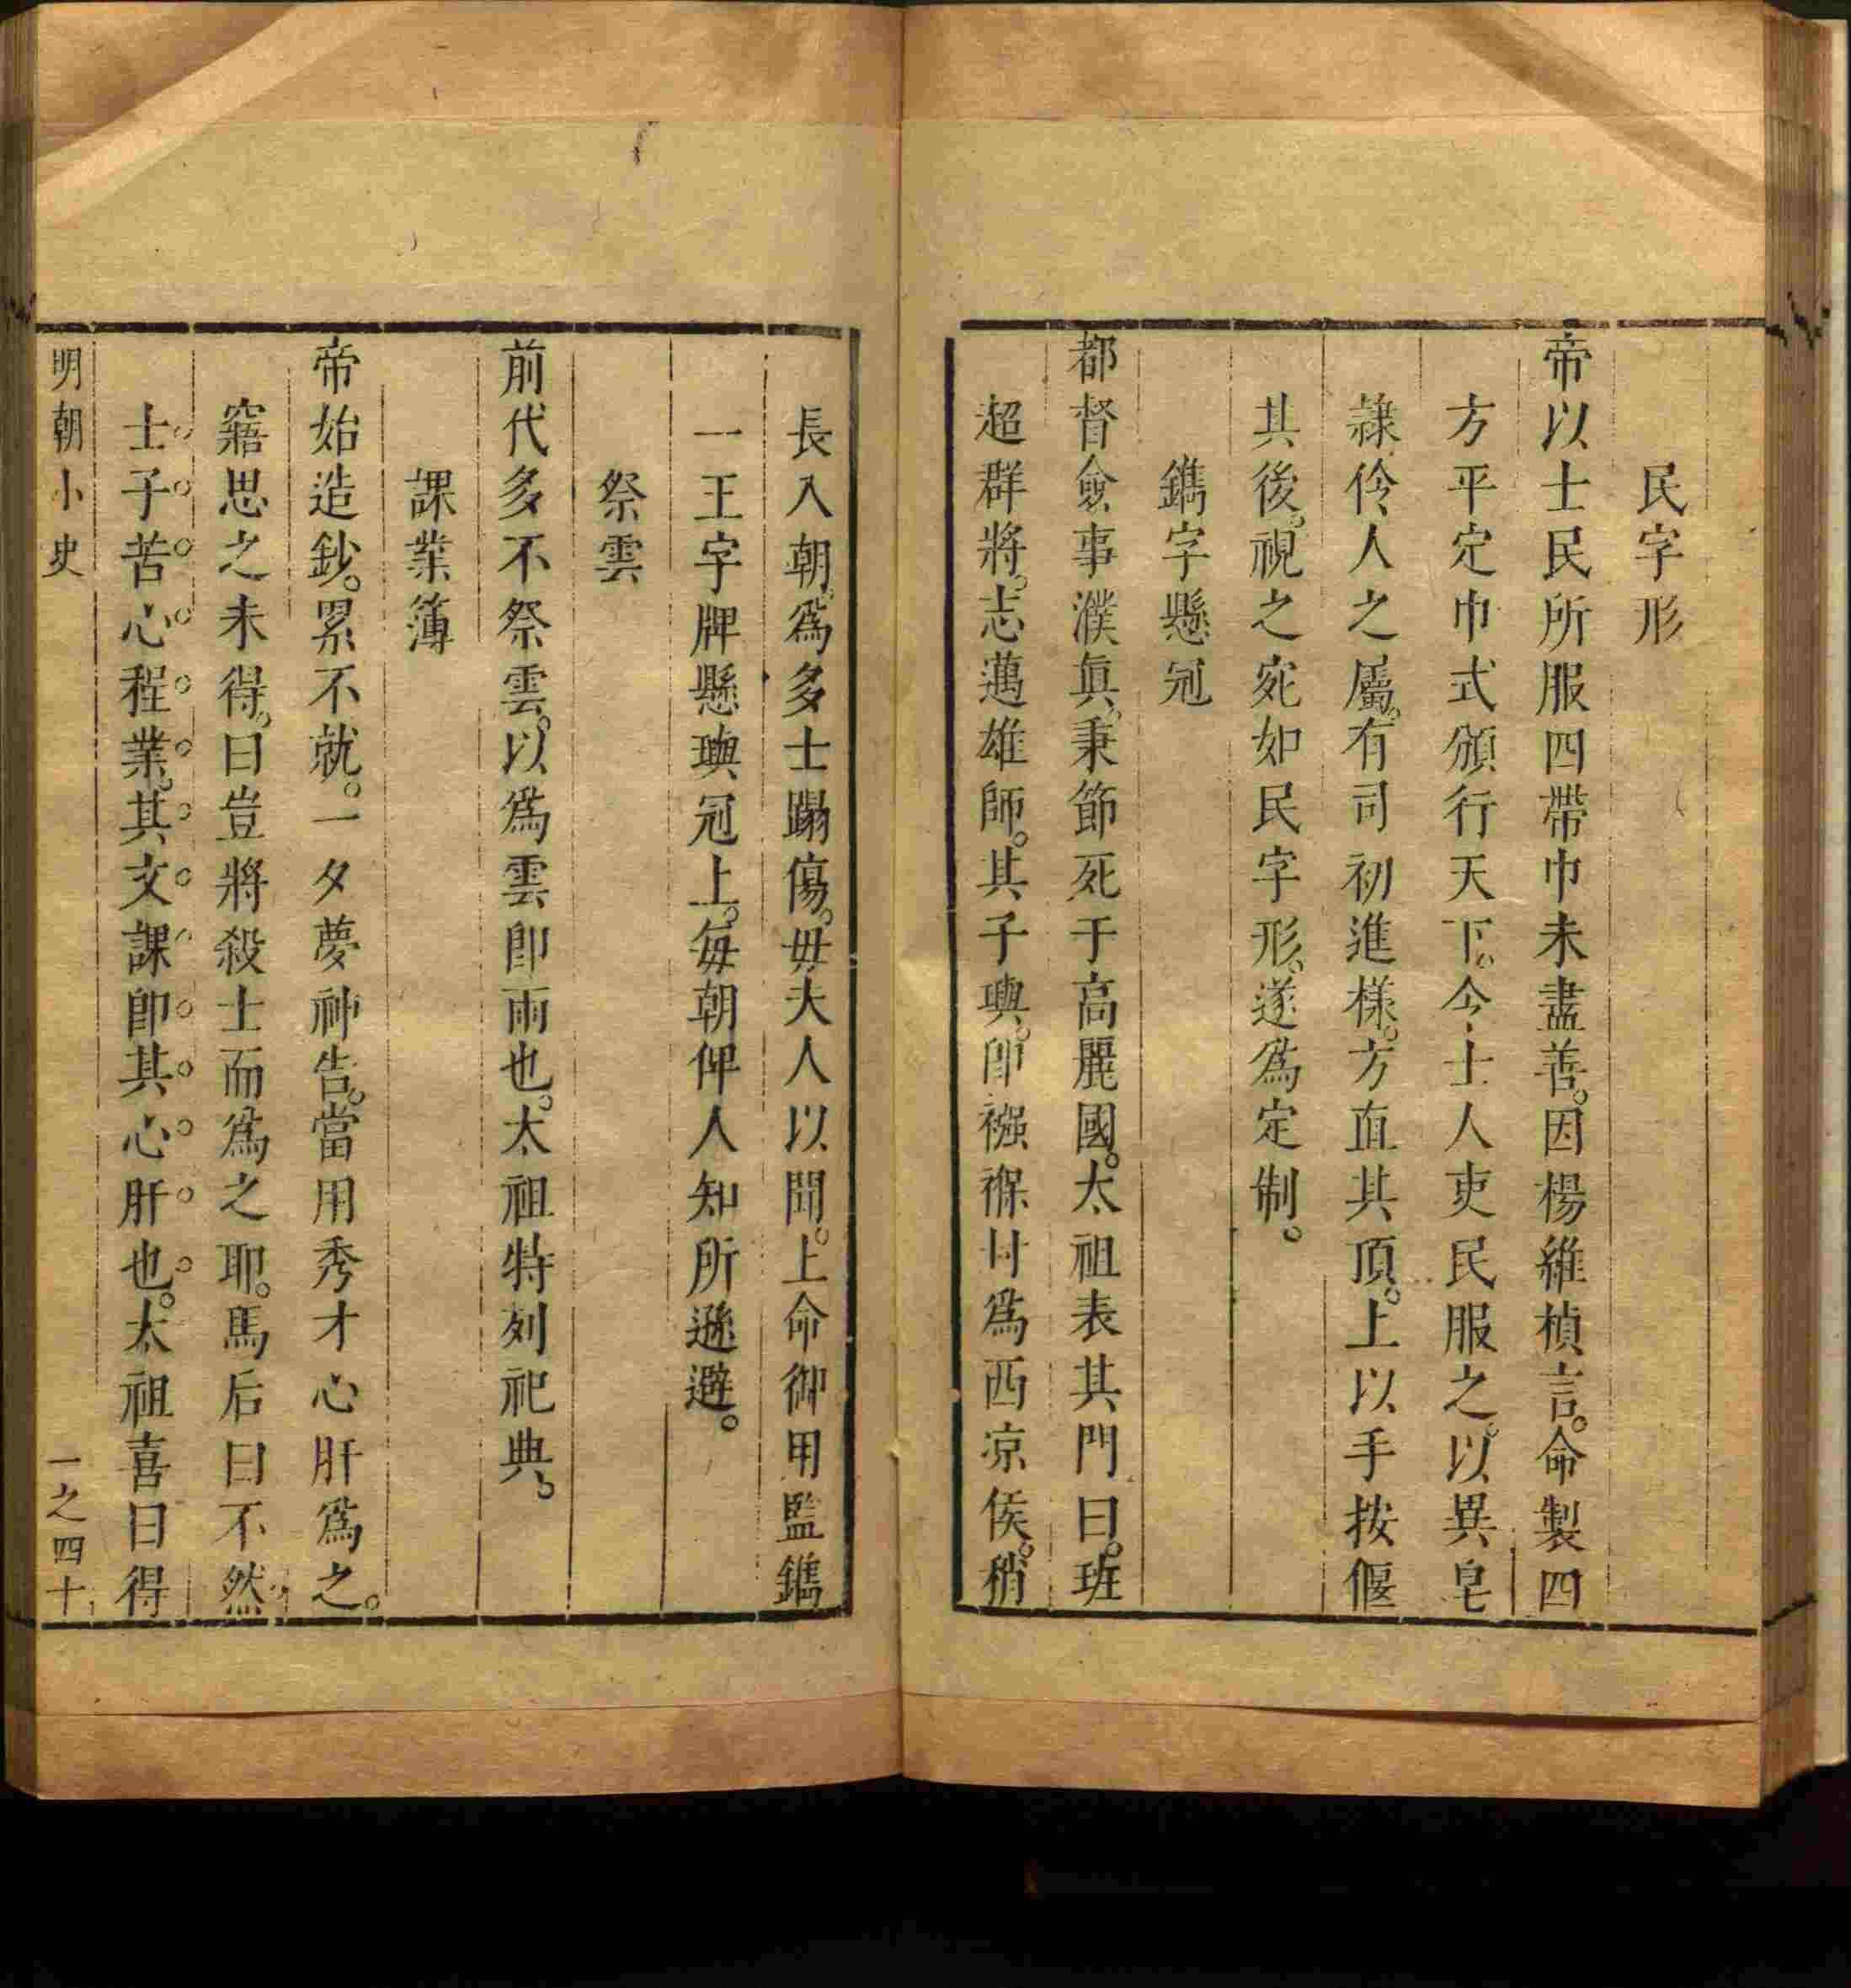 民字形
帝以士民所服四帶巾未盡善。因楊維楨言。命製四
方平定巾式頒行天下。今士人吏民服之。以異皂
隸伶人之屬。有司初進樣。方直其頂。上以手按偃
其後。視之宛如民字形。遂爲定制。
鐫字懸冠
都督僉事濮眞。秉節死于高麗國。太祖表其門曰。班
超群將。志邁雄師。其子璵。卽襁褓廾爲西凉侯。稍
長入朝。爲多士蹋傷。毋夫人以聞。上命御用監鐫
一王字牌懸璵冠上。每朝俾人知所遜避。
祭雲
前代多不祭雲。以爲雲卽雨也。太祖特列祀典。
課業簿
帝始造鈔。累不就。一夕夢神告。當用秀才心肝爲之。
寤思之未得。曰豈將殺士而爲之耶。馬后曰不然
士子苦心程業。其文課卽其心肝也。太祖喜曰得
明朝小史
一之四十